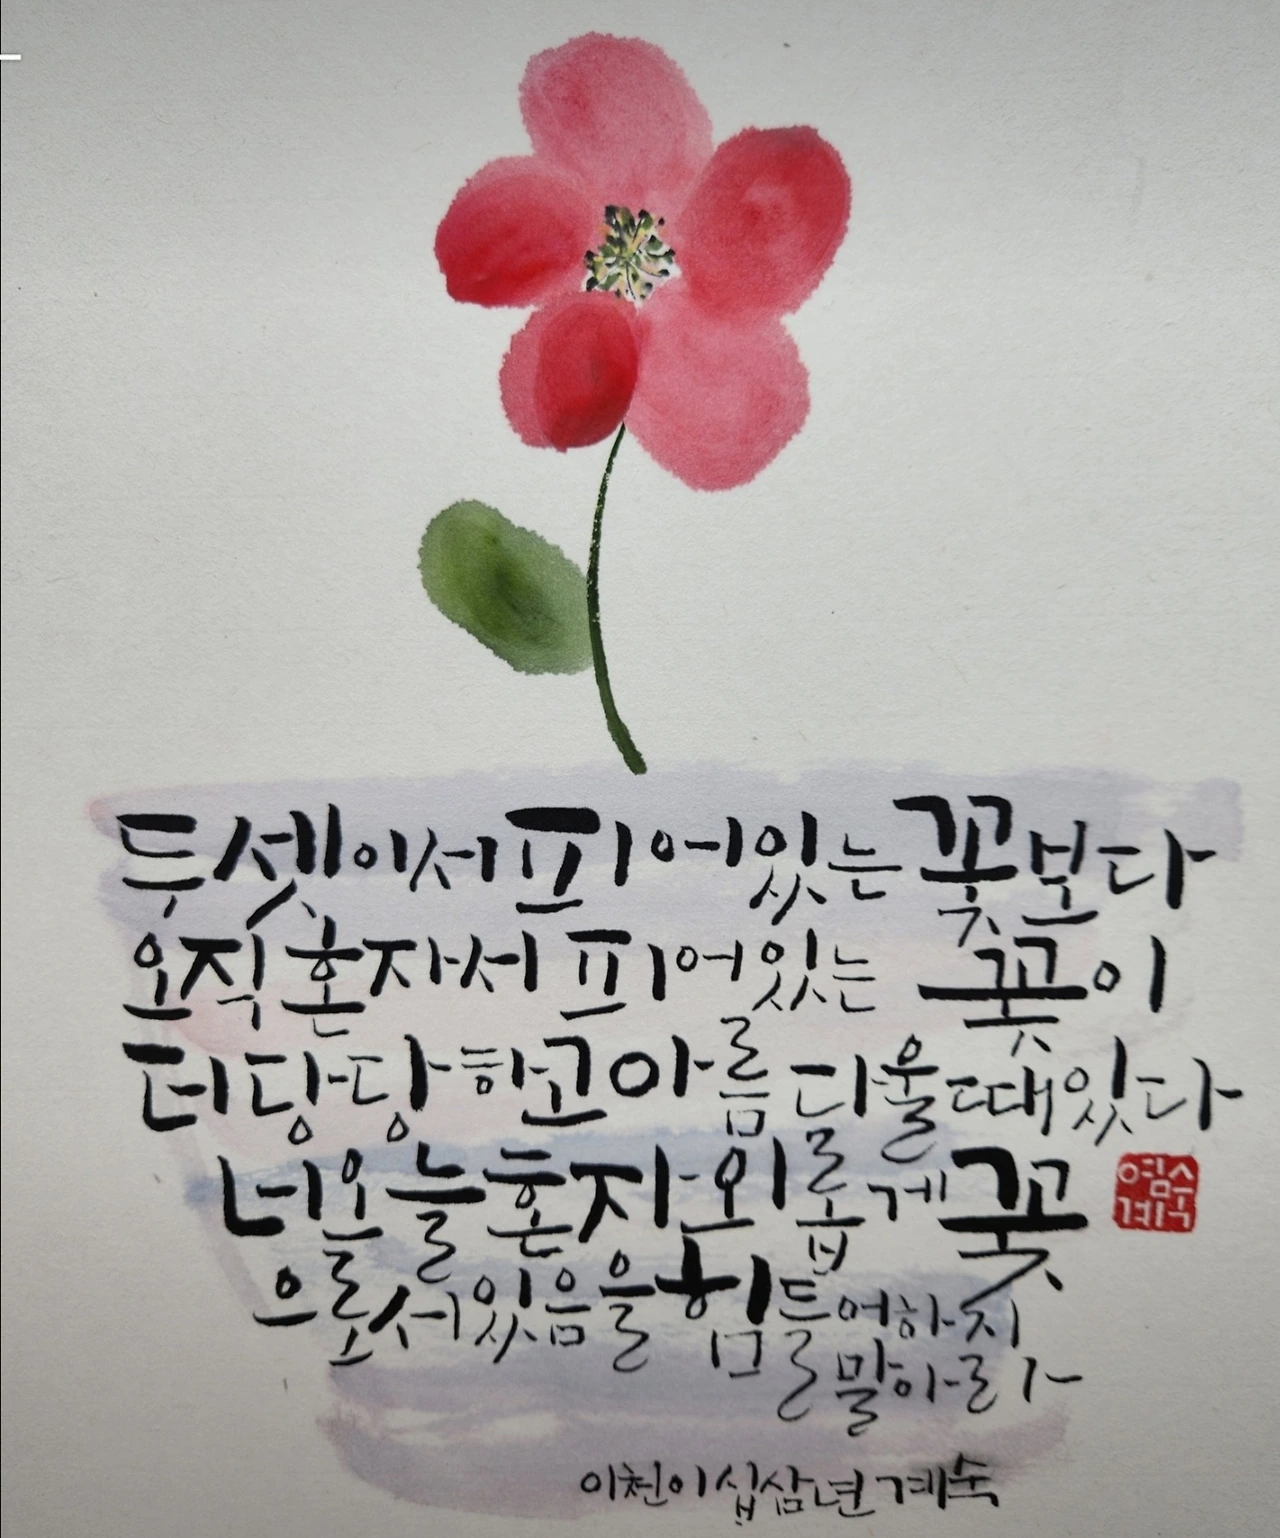 두셋이서 피어있는 꽃보다
오직 혼자서 피어있는 꽃이
더 당당하고 아름다울 때 있다
너 오늘 혼자 외롭게 꽃
으로 서 있음을 힘들어 하지
말아라
이천이십삼년 계숙